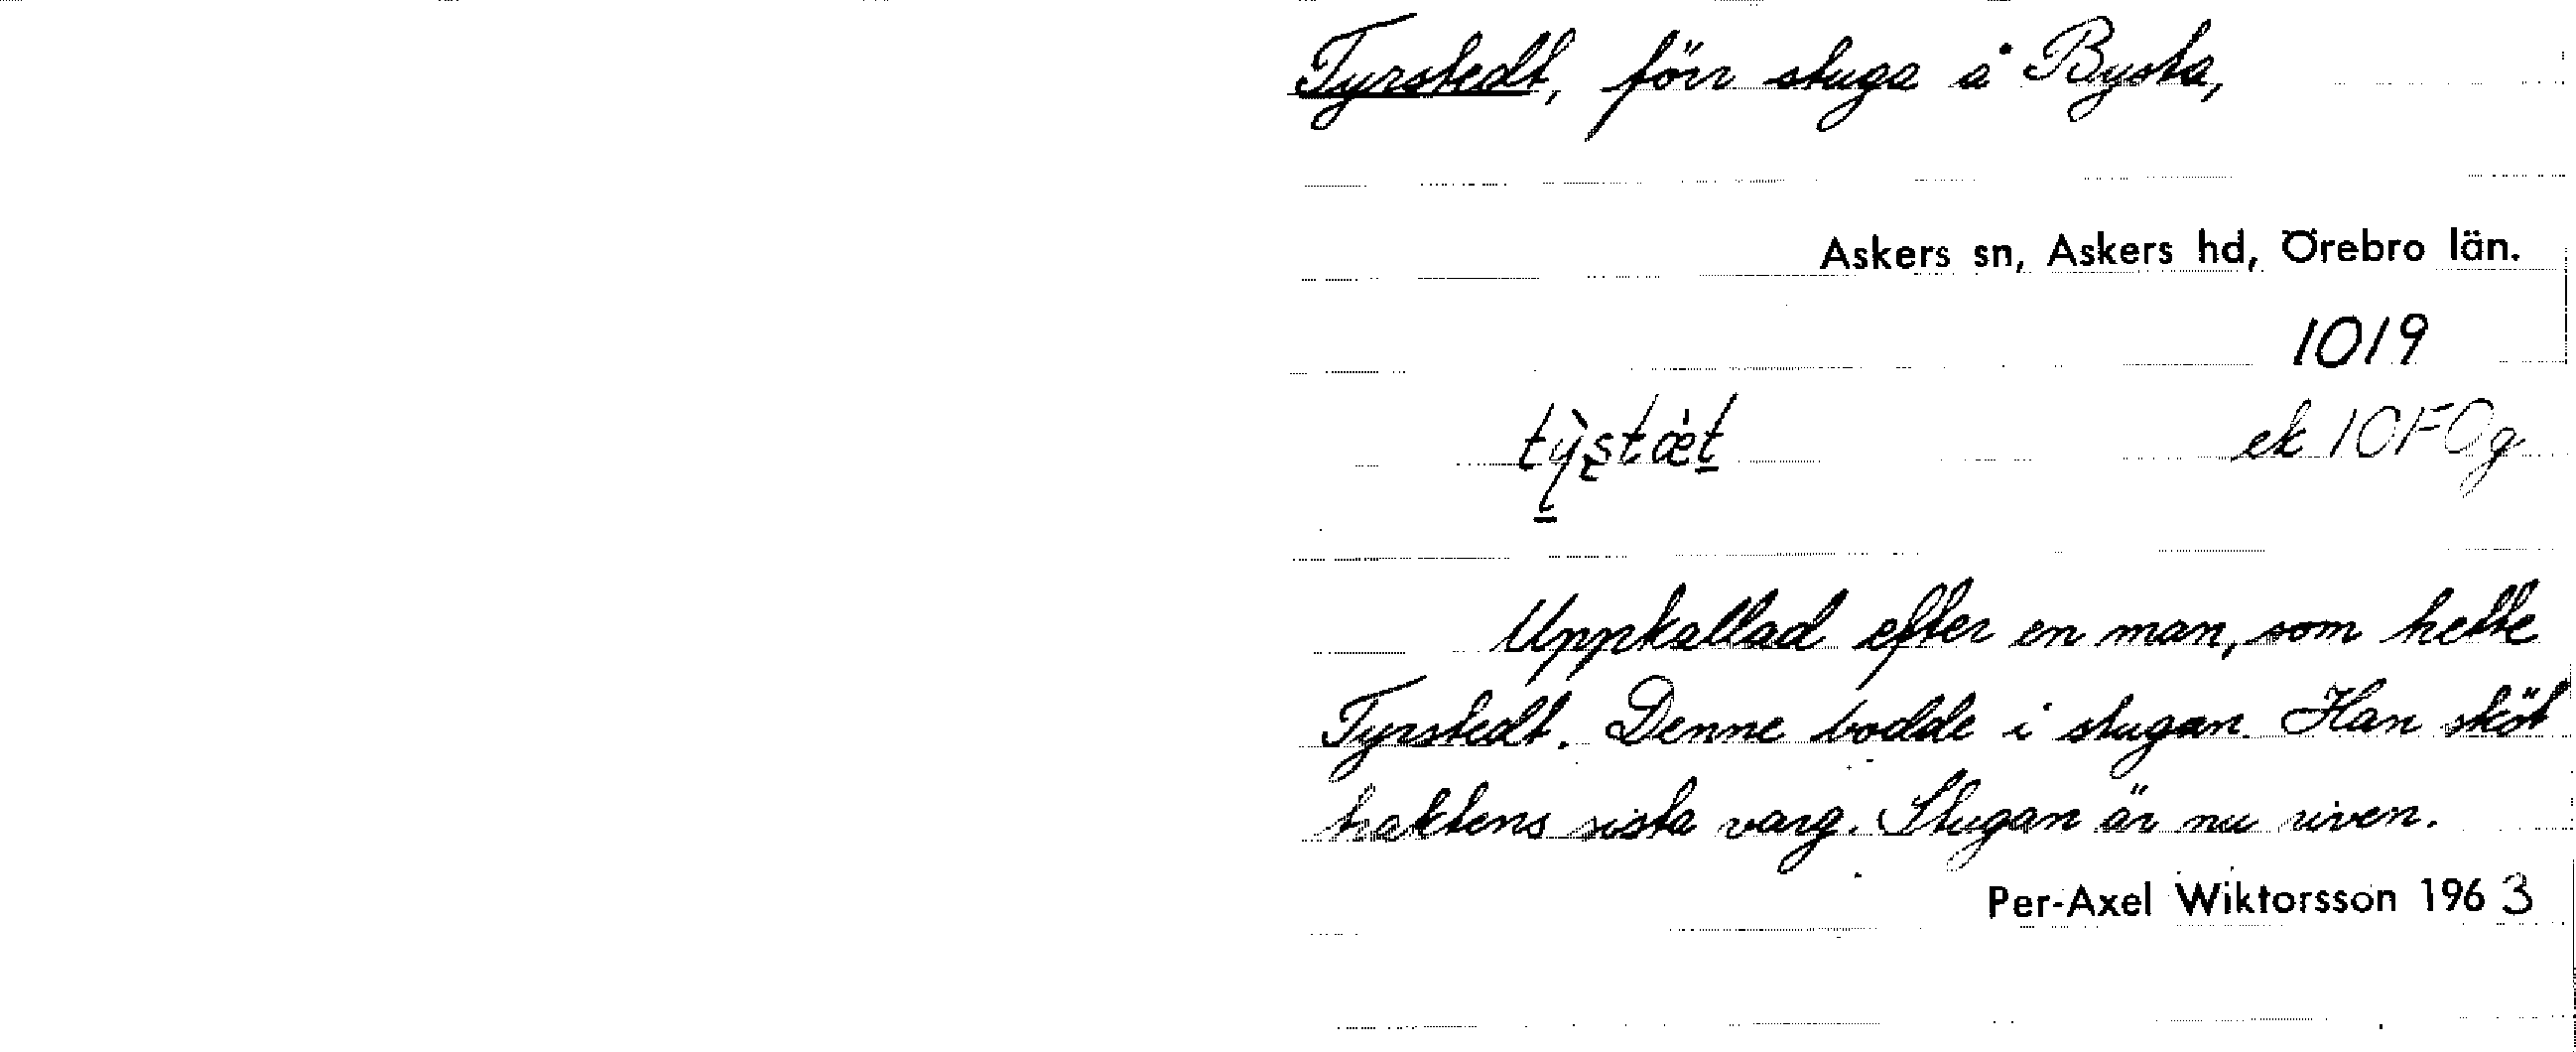 Tyrstedt, förr stuga å Bysta,
Askers sn, Askers hd, Örebro län.
1019
ek 10F0g
Uppkallad efter en man, som hette
Tyrstedt. Denne bodde i stugan. Han sköt
traktens sista varg. Stugan är nu riven.
Per-Axel Wiktorsson 1963